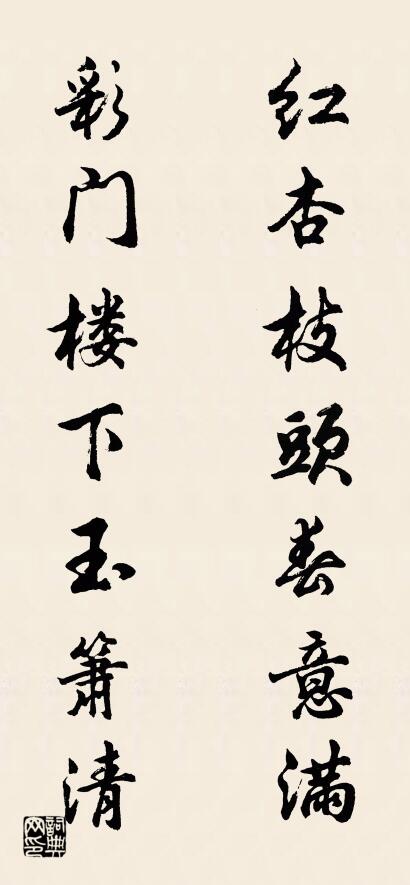 红杏枝頭春意满
彩门楼下玉箫清
詞典网印